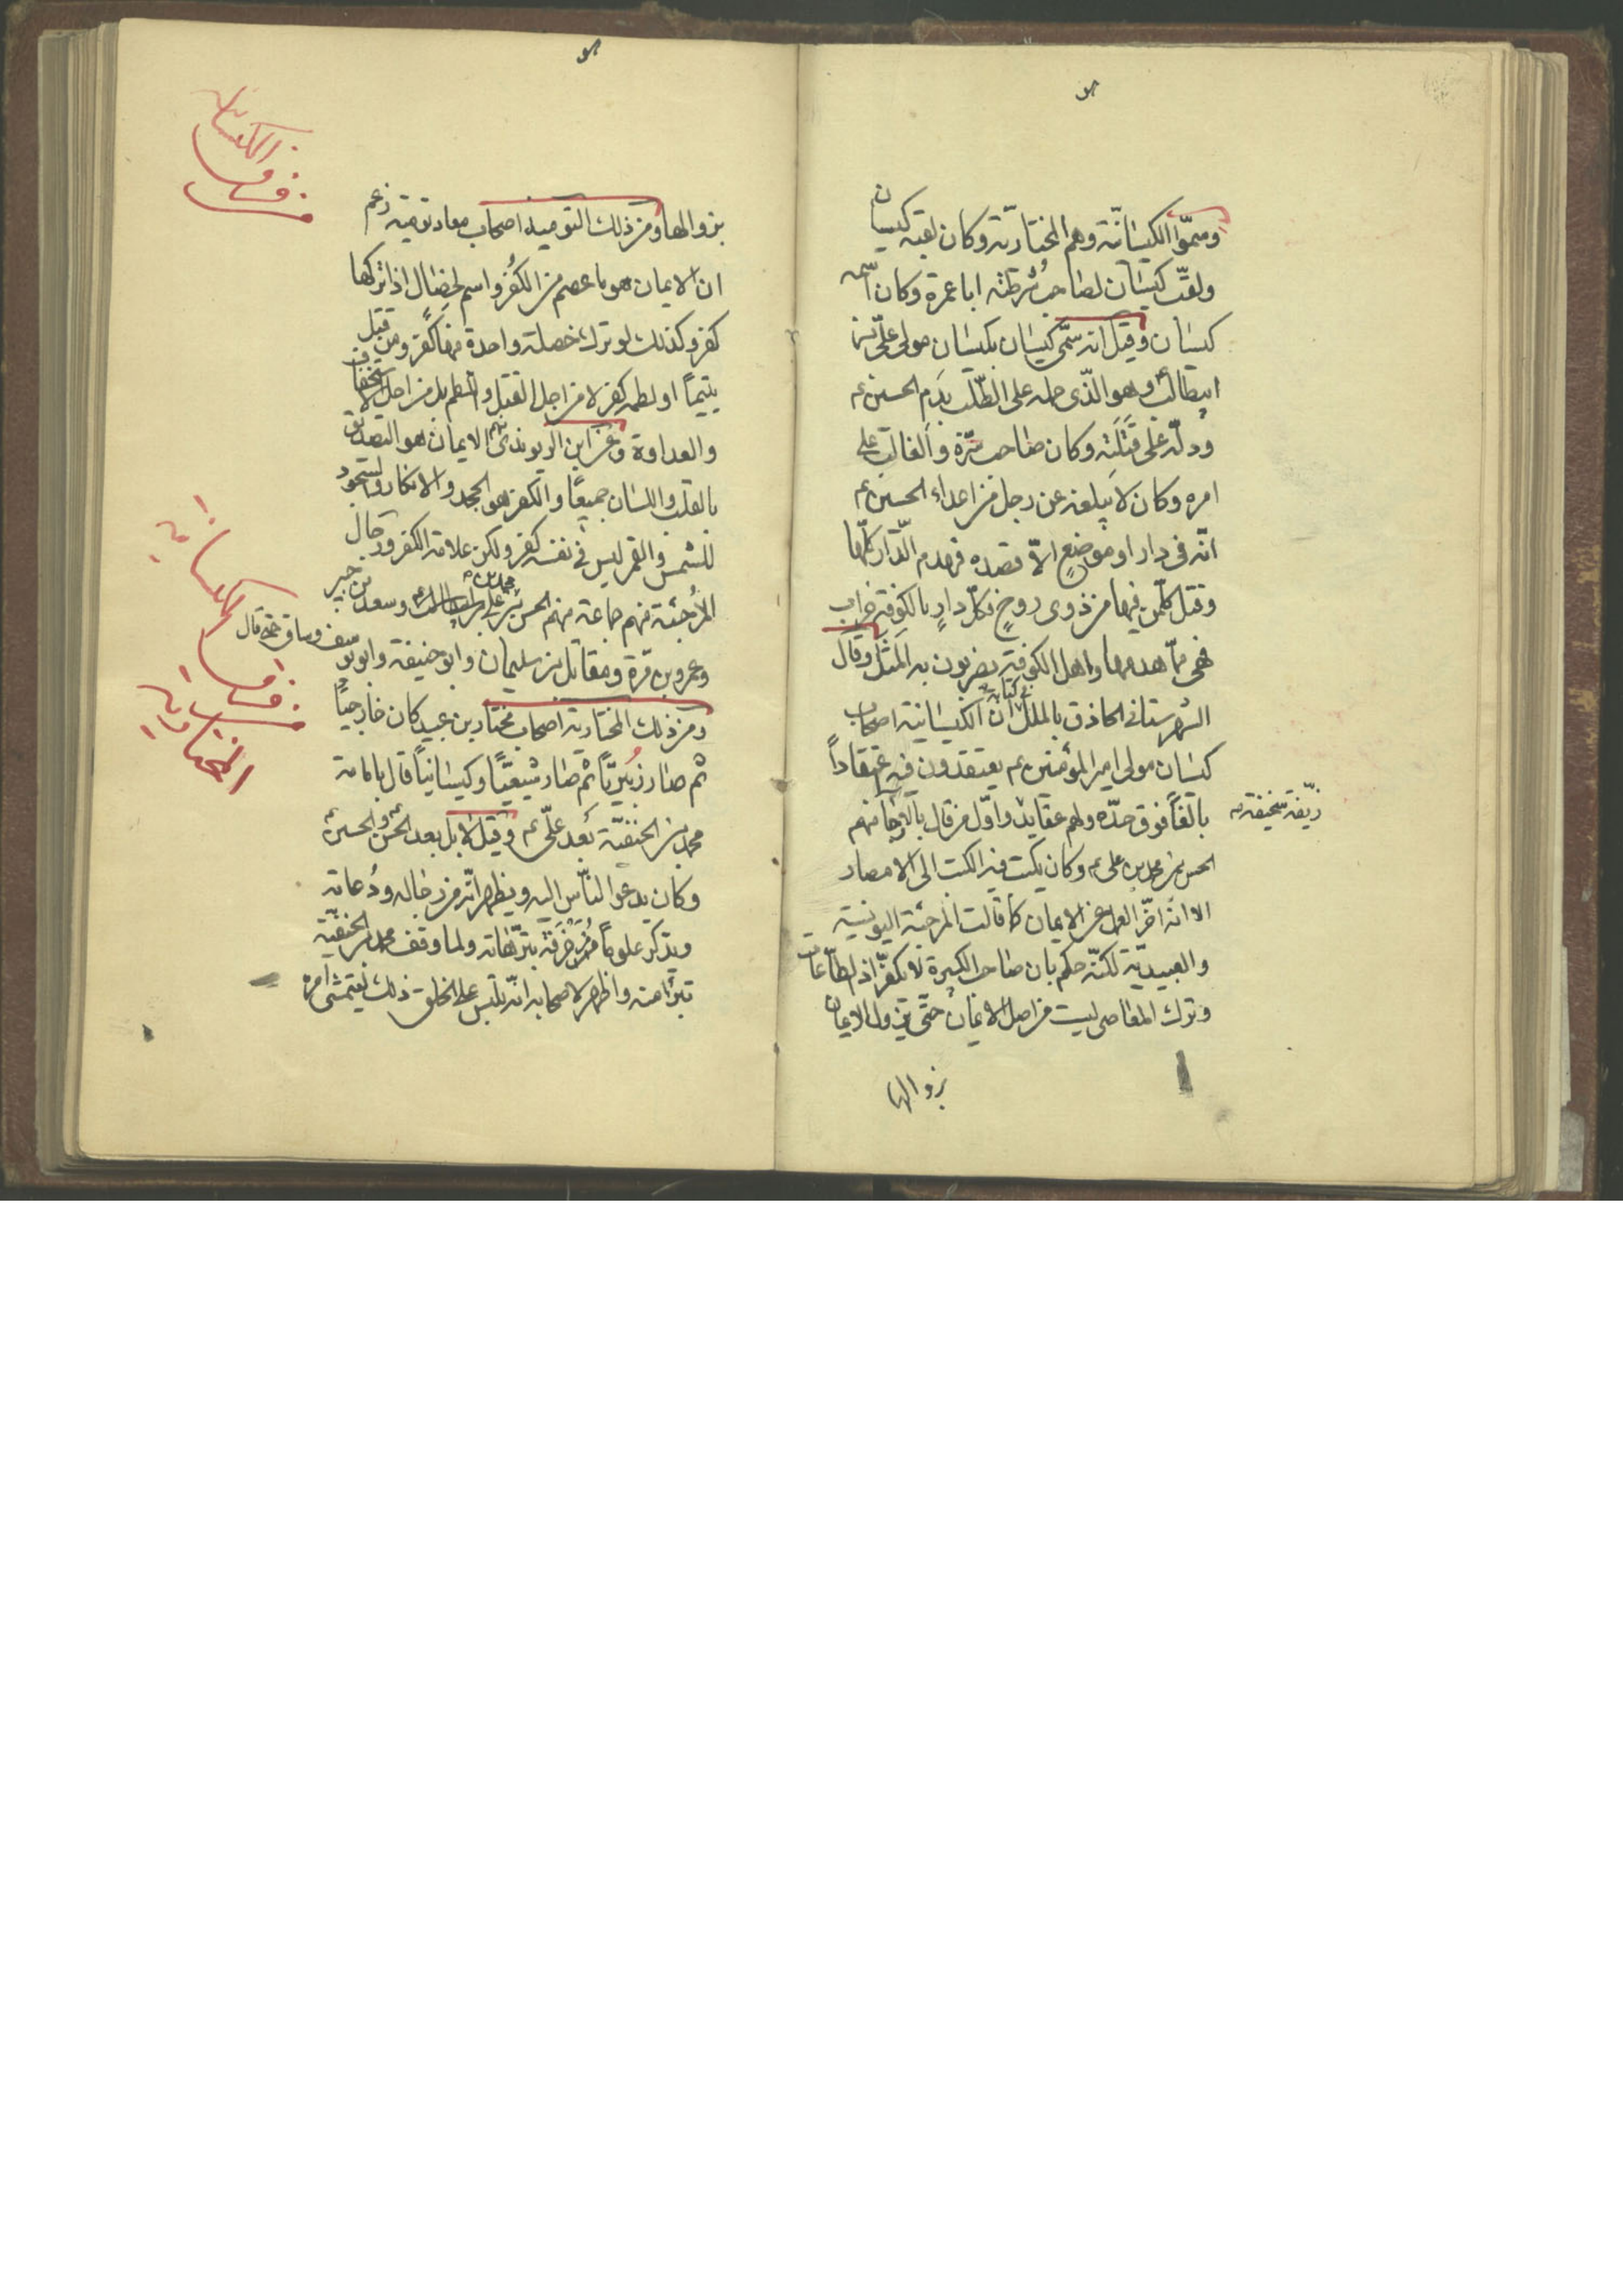 وسمّوا الكيسانيّة وهم المختاريّة وكان لقبه كيسان
ولقّب كيسان لصاحب شُرطته ابا عمرة وكان اسمه
كيسان وقيل انه سمّى كيسان بكيسان مولى علىّ بن
ابيطالب وهو الّذى حمله على الطّلب بدم الحسين ع
ودلّه على قَتَلَته وكان صاحب سرّه والغالب على
امره وكان لا يبلغه عن رجل من اعداء الحسين ع
انّه فى دار او موضعٍ الاّ قصده فهدم الدّار كلّها
وقتل كلّ من فيها من ذوى روحٍ فكلّ دارٍ بالكوفة خراب
فهى ممّا هدمها واهل الكوفة يضربون به المثل وقال
الشهرستانى الحاذق بالملل فى كتابه انّ الكيسانية اصحاب
كيسان مولى امير المؤمنين ع يعتقدون فيه اعتقاداً
بالغاً فوق حدّه ولهم عقايد واوّل من قال بالارجا منهم
زيّفة سخيفة
الحسن بن محمد بن على ع وكان يكتب فيه الكتب الى الامصار
الا انّه اخّر العمل عن الايمان كما قالت المرجئة اليونسية
والعبيديّة لكنّه حكم بان صاحب الكبيرة لا يكفر اذ الطّاعات
وترك المعاصى ليست من اصل الايمان حتّى يزول الايمان
بزوالها
فرقة الكيسانية
بزوالها ومن ذلك التومنية اصحاب معاد تومنية زعم
ان الايمان هو ما عصم من الكُفر واسم لخصالٍ اذا تركها
كفر وكذلك لو ترك خصلة واحدة منها كفر ومن قتل
يتيماً او لطمه كفر لا من اجل القتل واللطم بل من اجل الاستخفاف
والعداوة وعن ابن الريوندى الايمان هو التصديق
بالقلب واللسان جميعًا والكفر هو الجحد والانكار والسجود
للشمس والقمر ليس فى نفسه كفر ولكن علامة الكفر ورجال
المُرجئة منهم جماعة منهم الحسن بن محمد بن على بن ابيطالب ع وسعيد بن جبير
وعمرو بن مرة ومقاتل بن سليمان وابو حنيفة وابو يوسف وساق حتى قال
ومن ذلك المختارية اصحاب مختار بن عبيد كان خارجيّاً
ثم صار زُبيريّاً ثم صار شيعيّاً وكيسانياً قال بامامة
محمد بن الحنفيّة بعد علىّ ع وقيل لا بل بعد الحسن والحسين ع
وكان يدعو النّاس اليه ويظهر انّه من رجاله ودُعاته
ويذكر علوماً مُزَخْرَفَة بترّهاته ولما وقف محمد بن الحنفيّة
تبرّأ منه واظهر لاصحابه انّه تلبّس على الخلق ذلك ليتمشى امره
فرقة الكيسانية
المختارية